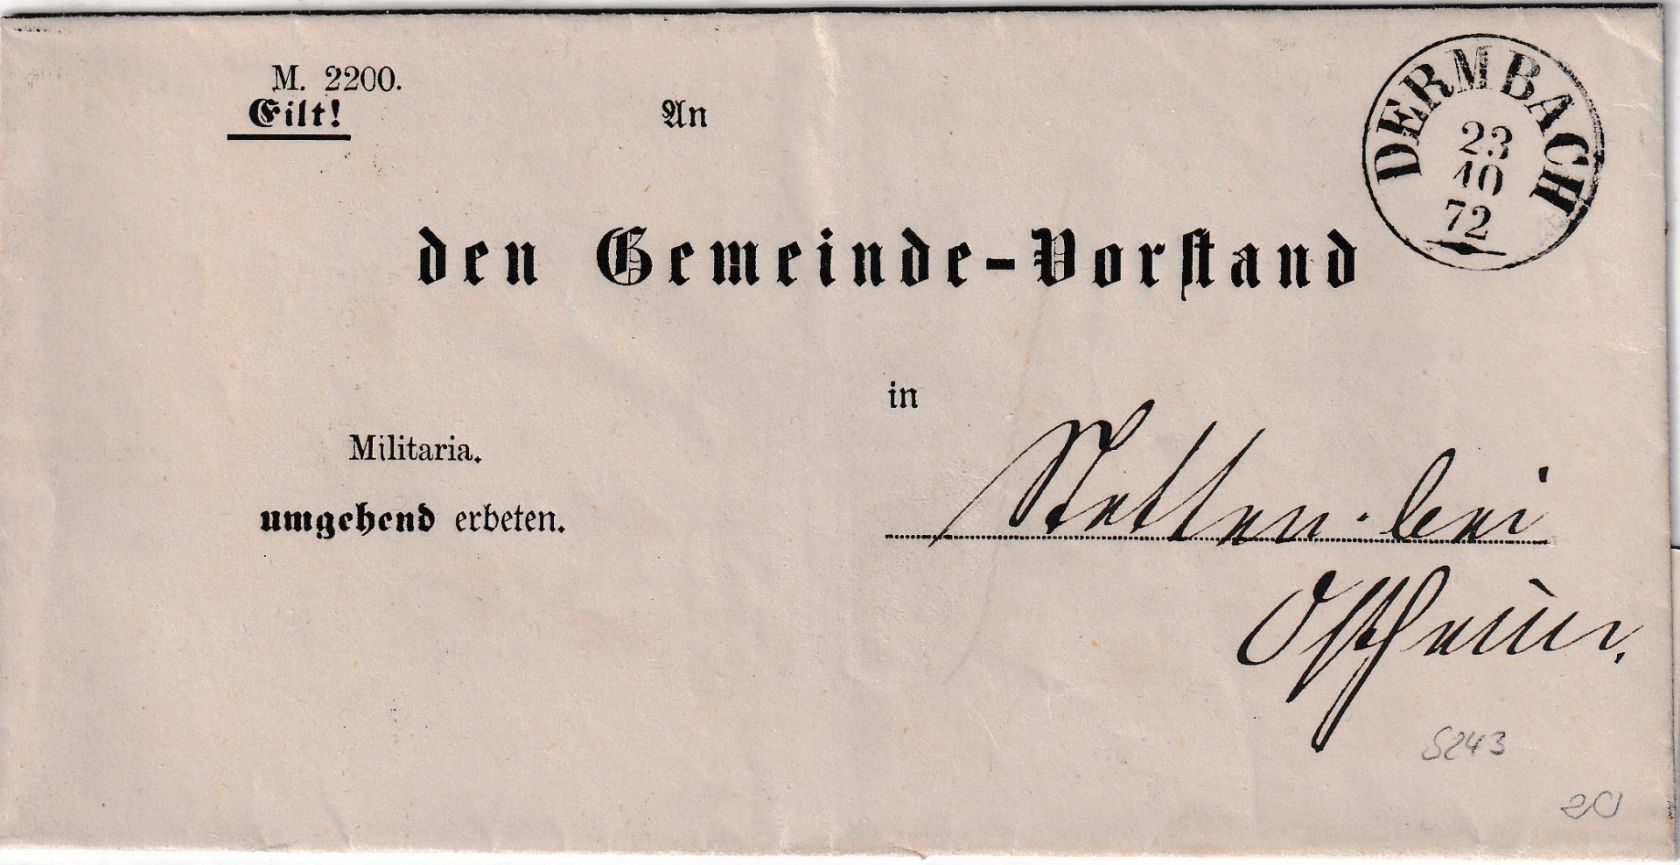 M. 2200.
Eilt!
An
DERMBACH
23
10
72
den Gemeinde-Vorstand
in
Militaria.
umgehend erbeten.
Stetten bei
Ostheim.
5243